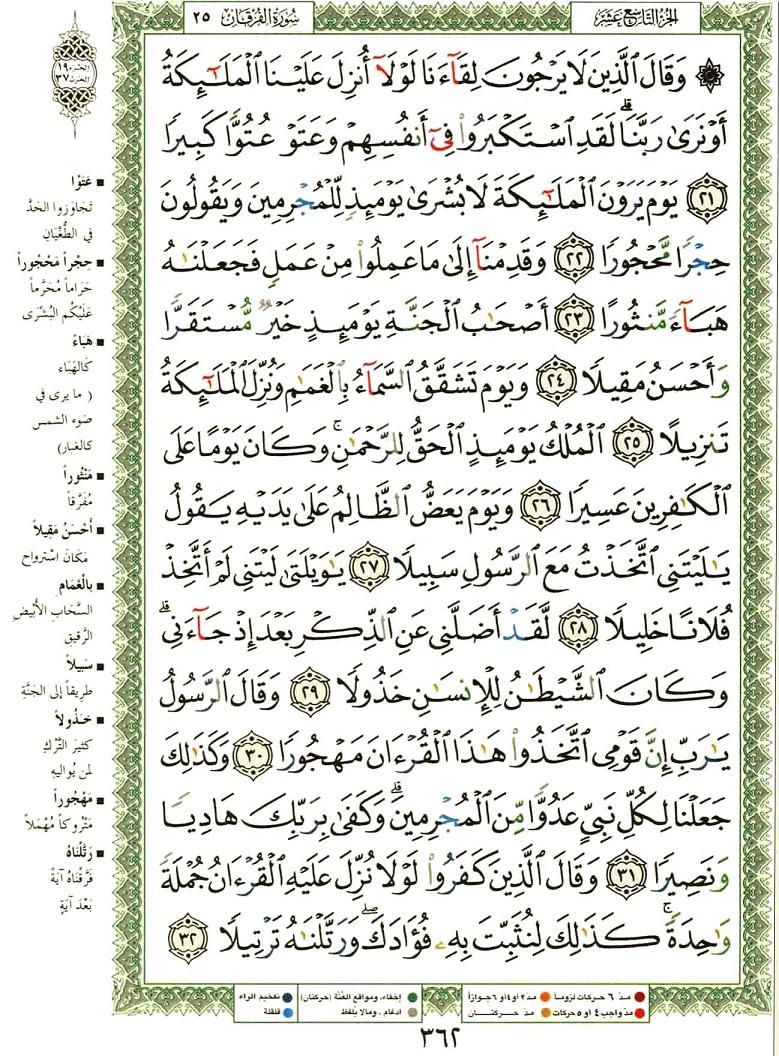 الجزء التاسع عشر
سورة الفرقان ٢٥
الجزء ١٩
الحزب ٣٧
۞ وَقَالَ ٱلَّذِينَ لَا يَرْجُونَ لِقَآءَنَا لَوْلَآ أُنزِلَ عَلَيْنَا ٱلْمَلَٰٓئِكَةُ
أَوْ نَرَىٰ رَبَّنَا ۗ لَقَدِ ٱسْتَكْبَرُوا۟ فِىٓ أَنفُسِهِمْ وَعَتَوْ عُتُوًّا كَبِيرًا
٢١ يَوْمَ يَرَوْنَ ٱلْمَلَٰٓئِكَةَ لَا بُشْرَىٰ يَوْمَئِذٍ لِّلْمُجْرِمِينَ وَيَقُولُونَ
حِجْرًا مَّحْجُورًا ٢٢ وَقَدِمْنَآ إِلَىٰ مَا عَمِلُوا۟ مِنْ عَمَلٍ فَجَعَلْنَٰهُ
هَبَآءً مَّنثُورًا ٢٣ أَصْحَٰبُ ٱلْجَنَّةِ يَوْمَئِذٍ خَيْرٌ مُّسْتَقَرًّا
وَأَحْسَنُ مَقِيلًا ٢٤ وَيَوْمَ تَشَقَّقُ ٱلسَّمَآءُ بِٱلْغَمَٰمِ وَنُزِّلَ ٱلْمَلَٰٓئِكَةُ
تَنزِيلًا ٢٥ ٱلْمُلْكُ يَوْمَئِذٍ ٱلْحَقُّ لِلرَّحْمَٰنِ ۚ وَكَانَ يَوْمًا عَلَى
ٱلْكَٰفِرِينَ عَسِيرًا ٢٦ وَيَوْمَ يَعَضُّ ٱلظَّالِمُ عَلَىٰ يَدَيْهِ يَقُولُ
يَٰلَيْتَنِى ٱتَّخَذْتُ مَعَ ٱلرَّسُولِ سَبِيلًا ٢٧ يَٰوَيْلَتَىٰ لَيْتَنِى لَمْ أَتَّخِذْ
فُلَانًا خَلِيلًا ٢٨ لَّقَدْ أَضَلَّنِى عَنِ ٱلذِّكْرِ بَعْدَ إِذْ جَآءَنِى ۗ
وَكَانَ ٱلشَّيْطَٰنُ لِلْإِنسَٰنِ خَذُولًا ٢٩ وَقَالَ ٱلرَّسُولُ
يَٰرَبِّ إِنَّ قَوْمِى ٱتَّخَذُوا۟ هَٰذَا ٱلْقُرْءَانَ مَهْجُورًا ٣٠ وَكَذَٰلِكَ
جَعَلْنَا لِكُلِّ نَبِىٍّ عَدُوًّا مِّنَ ٱلْمُجْرِمِينَ ۗ وَكَفَىٰ بِرَبِّكَ هَادِيًا
وَنَصِيرًا ٣١ وَقَالَ ٱلَّذِينَ كَفَرُوا۟ لَوْلَا نُزِّلَ عَلَيْهِ ٱلْقُرْءَانُ جُمْلَةً
وَٰحِدَةً ۚ كَذَٰلِكَ لِنُثَبِّتَ بِهِۦ فُؤَادَكَ ۖ وَرَتَّلْنَٰهُ تَرْتِيلًا ٣٢
■ عَتَوْا
تَجَاوَزُوا الحَدَّ
في الطُّغْيَانِ
■ حِجْراً مَحْجُوراً
حَرَاماً مُحَرَّماً
عَلَيْكُم البُشْرَى
■ هَبَاءً
كَالهَبَاء
( ما يرى في
ضوء الشمس
كالغبار)
■ مَنْثُوراً
مُفَرَّقاً
■ أَحْسَنُ مَقِيلاً
مَكَانَ اسْتِرْوَاح
■ بالْغَمَام
السَّحَاب الأَبْيض
الرَّقِيق
■ سَبِيلاً
طريقاً إلى الجَنَّةِ
■ خَذُولاً
كثيرَ التَّرْكِ
لمن يُواليه
■ مَهْجُوراً
مَتْرُوكاً مُهْمَلاً
■ رَتَّلْنَاهُ
فَرَّقْنَاهُ آيَةً
بَعْدَ آيَةٍ
مد ٦ حركات لزوماً
مد ٢ أو ٤ أو ٦ جوازاً
إخفاء، ومواقع الغنة (حركتان)
تفخيم الراء
مد واجب ٤ أو ٥ حركات
مد حركتان
ادغام ، وما لا يلفظ
قلقلة
٣٦٢